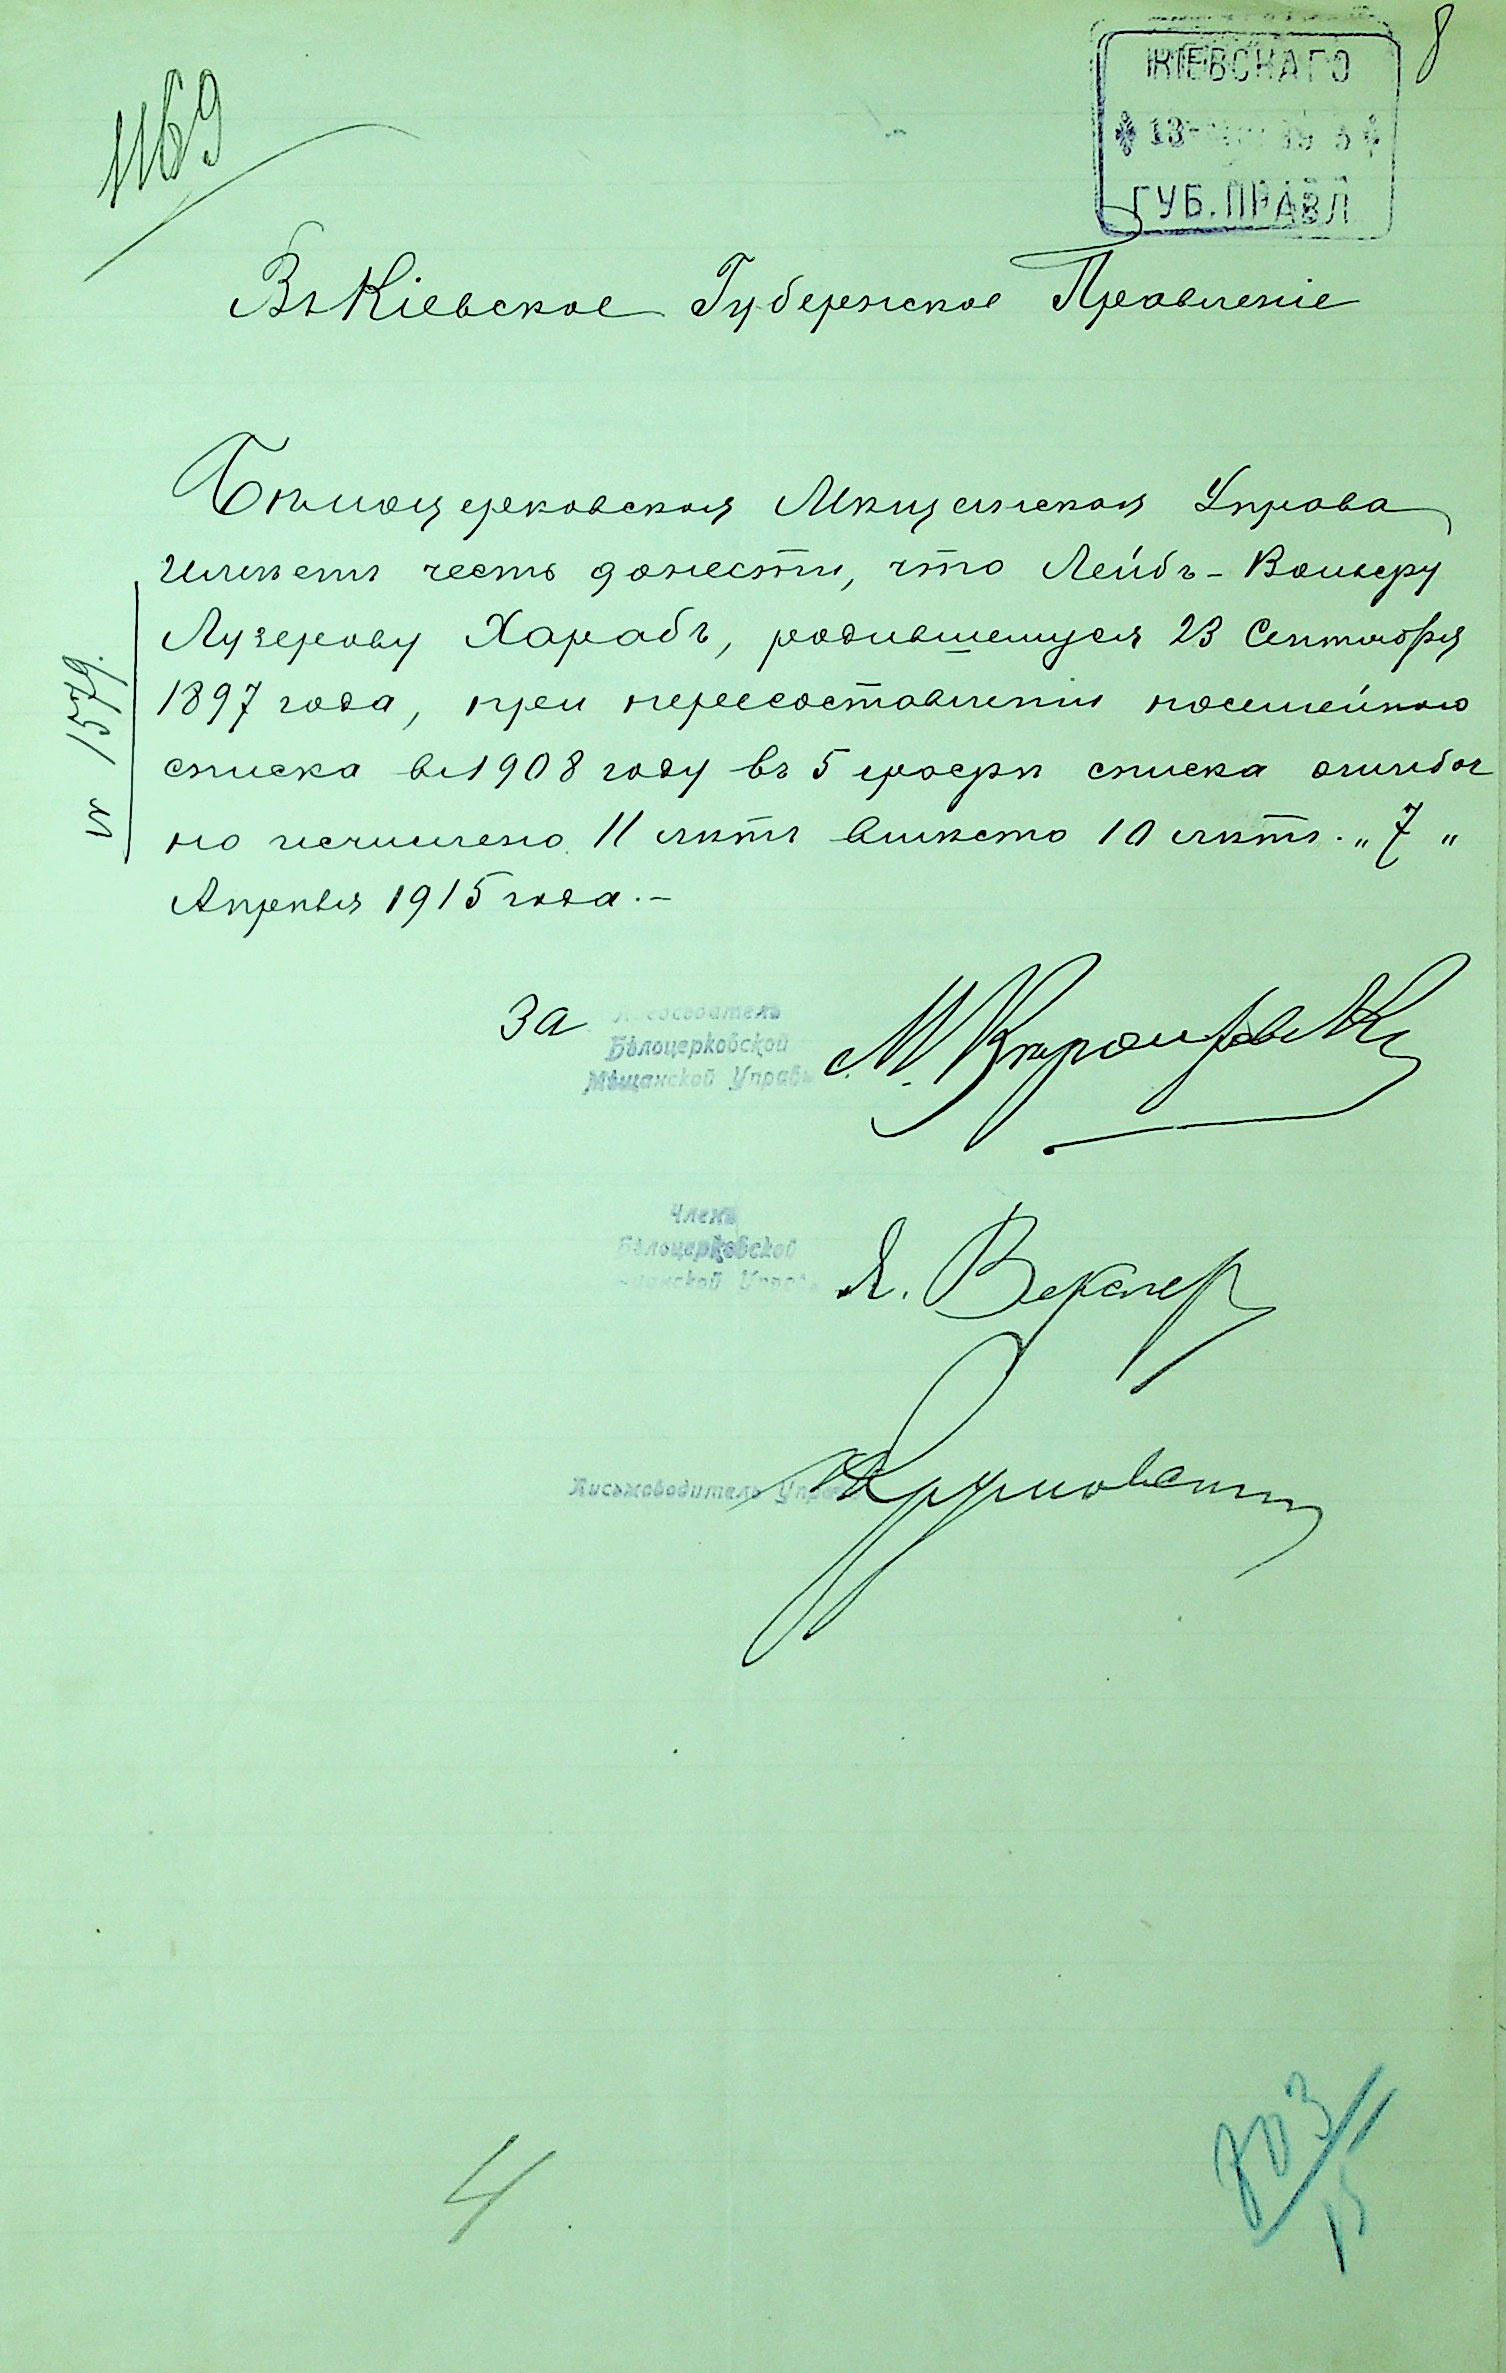 8
КІЕВСКАГО
13
ГУБ. ПРАВЛ.
1169
Въ Кіевское Губернское Правленіе
Бѣлоцерковская Мѣщанская Управа
имѣетъ честь донести, что Лейбъ-Вольеру
Лузерову Харабъ, родившемуся 23 Сентября
1897 года, при пересоставленіи посемейнаго
списка въ 1908 году въ 5 графѣ списка ошибоч
но исчислено 11 лѣтъ вмѣсто 10 лѣтъ. „7"
Апрѣля 1915 года.-
№ 1579.
За Предсѣдатель
Бѣлоцерковской
Мѣщанской Управы
М.
Членъ
Бѣлоцерковской
Мѣщанской Управы
Я. Векслер
Письмоводитель Управы
4
803/II
15